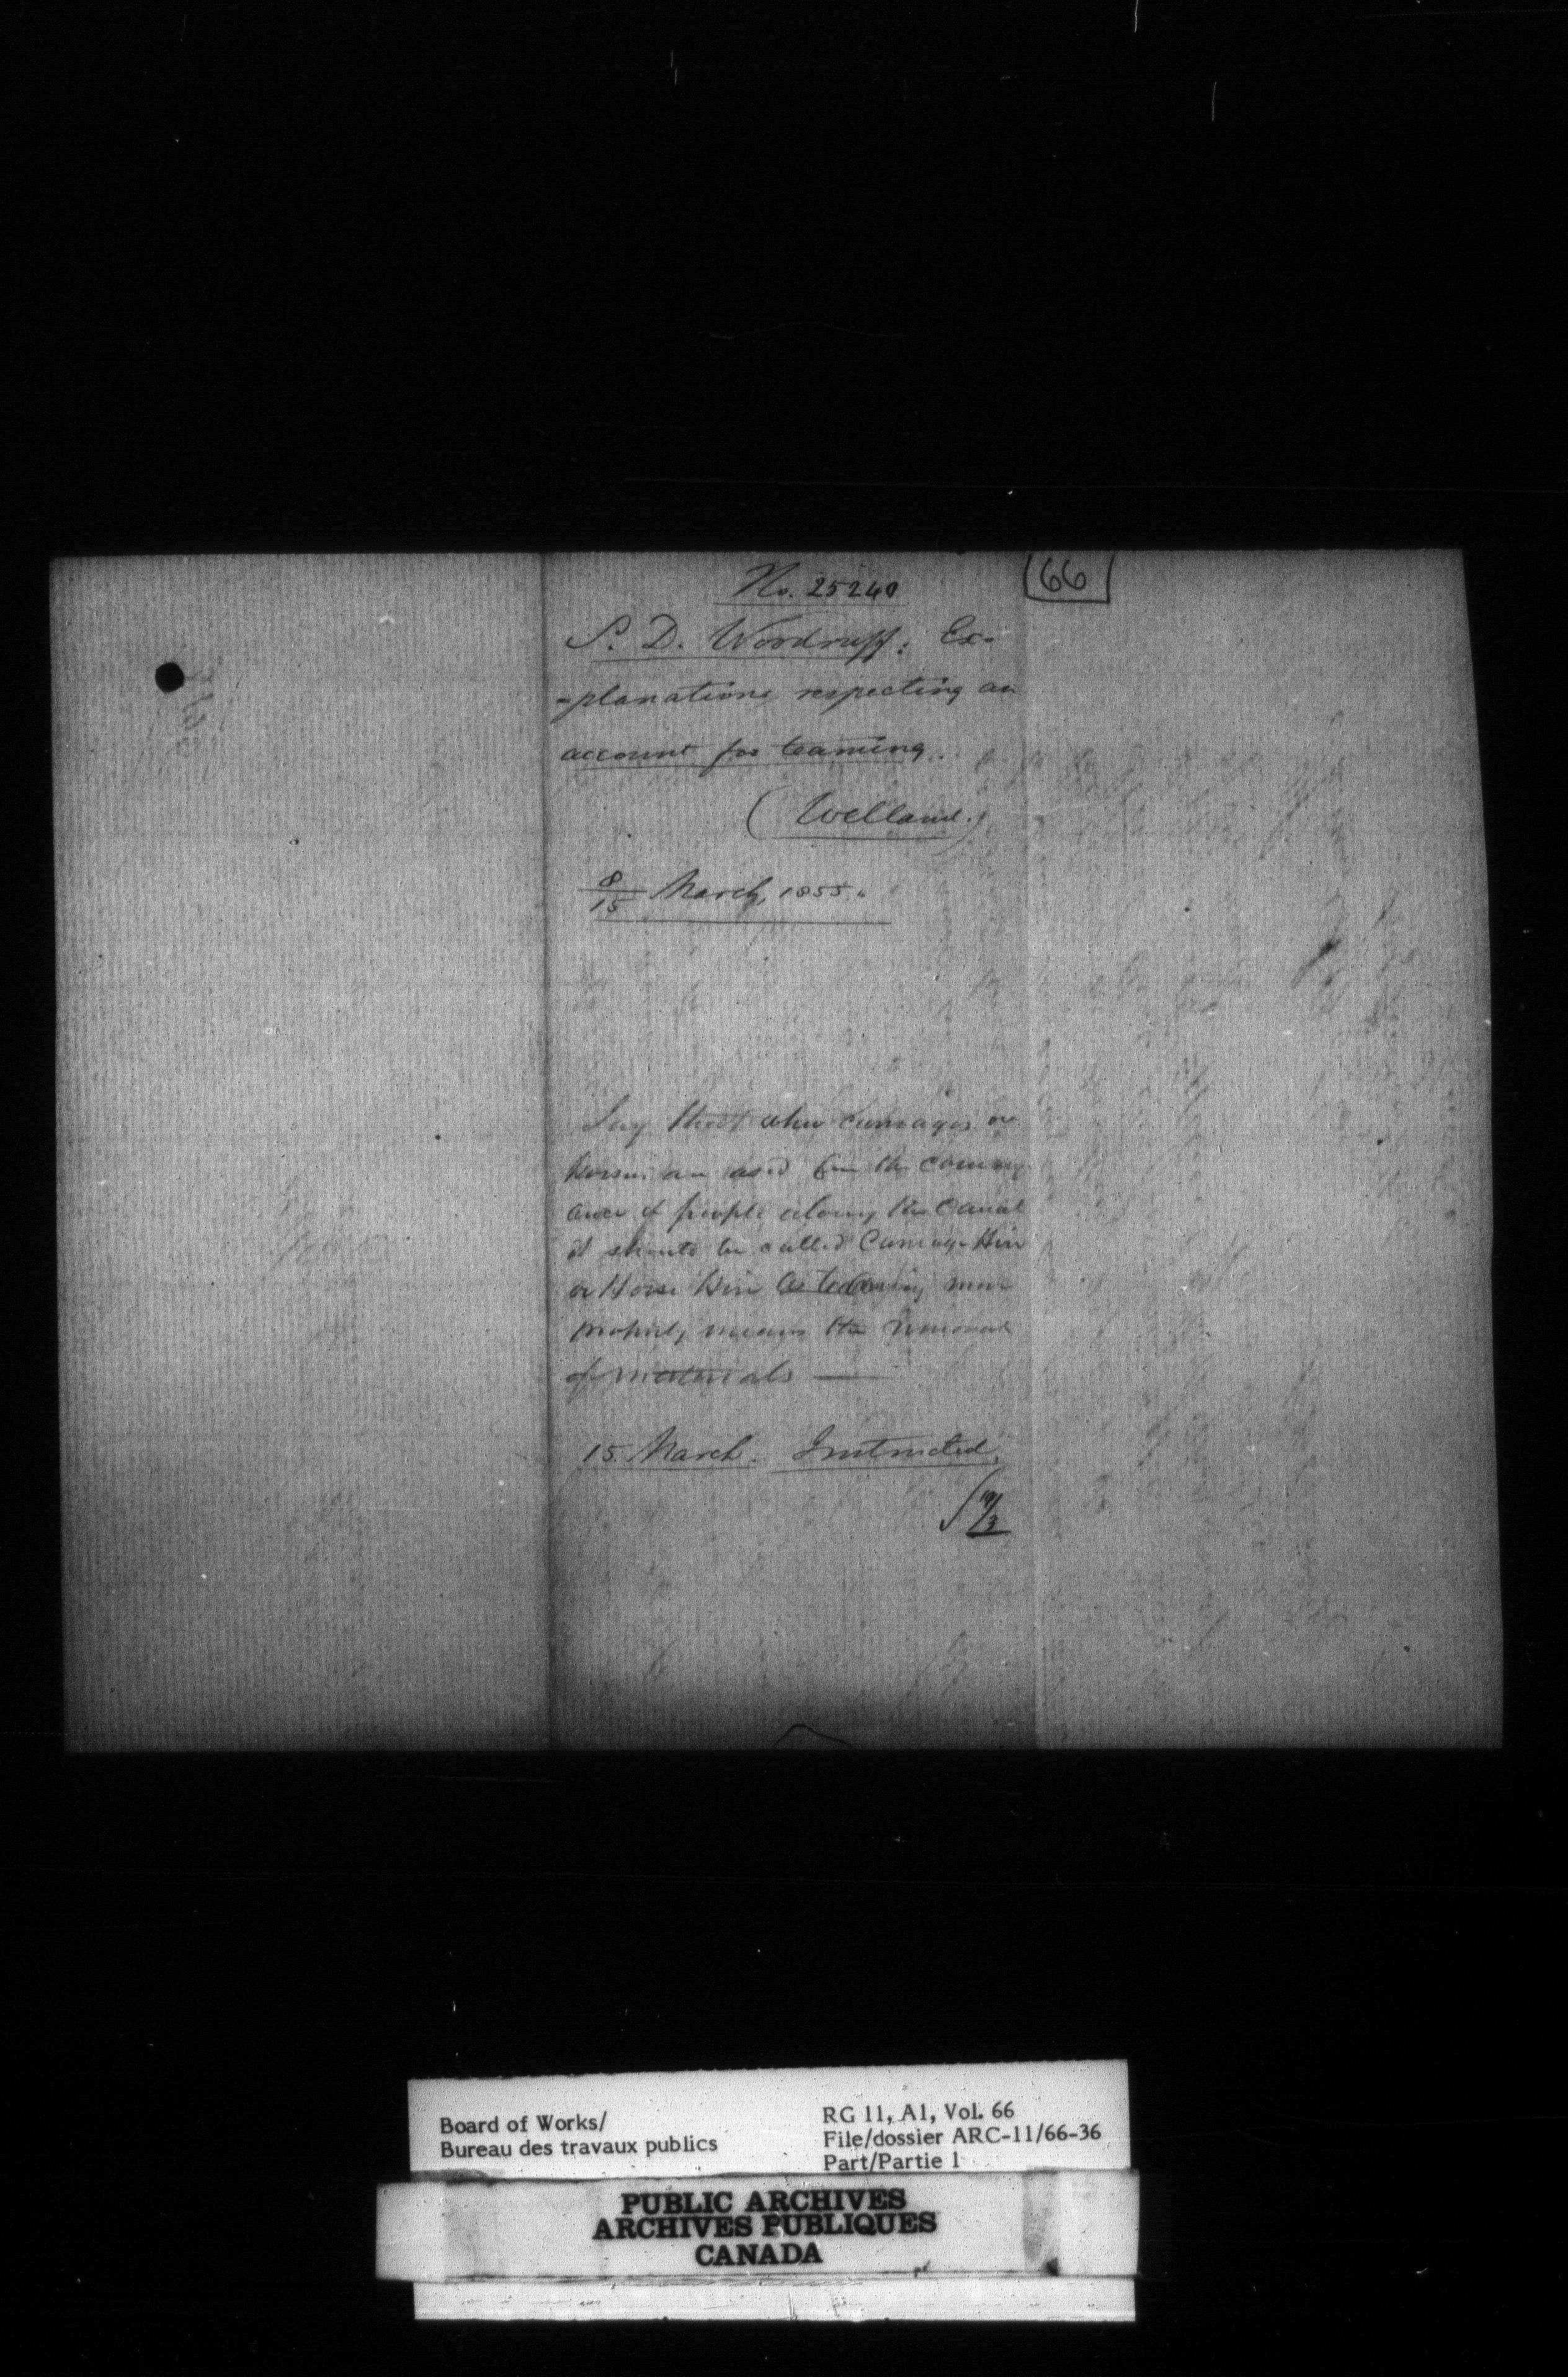 No. 25240
66
S. D. Woodruff: Ex-
-planations respecting an
account for teaming.
(Welland.)
8/15 March, 1855.
Say that when Carriages or
horses are used for the convey
ance of people along the Canal
it should be called Carriage Hire
or Horse Hire as teaming more
properly means the removal
of materials —
15. March. Instructed.
Board of Works/
Bureau des travaux publics
RG 11, A1, Vol. 66
File/dossier ARC-11/66-36
Part/Partie 1
PUBLIC ARCHIVES
ARCHIVES PUBLIQUES
CANADA